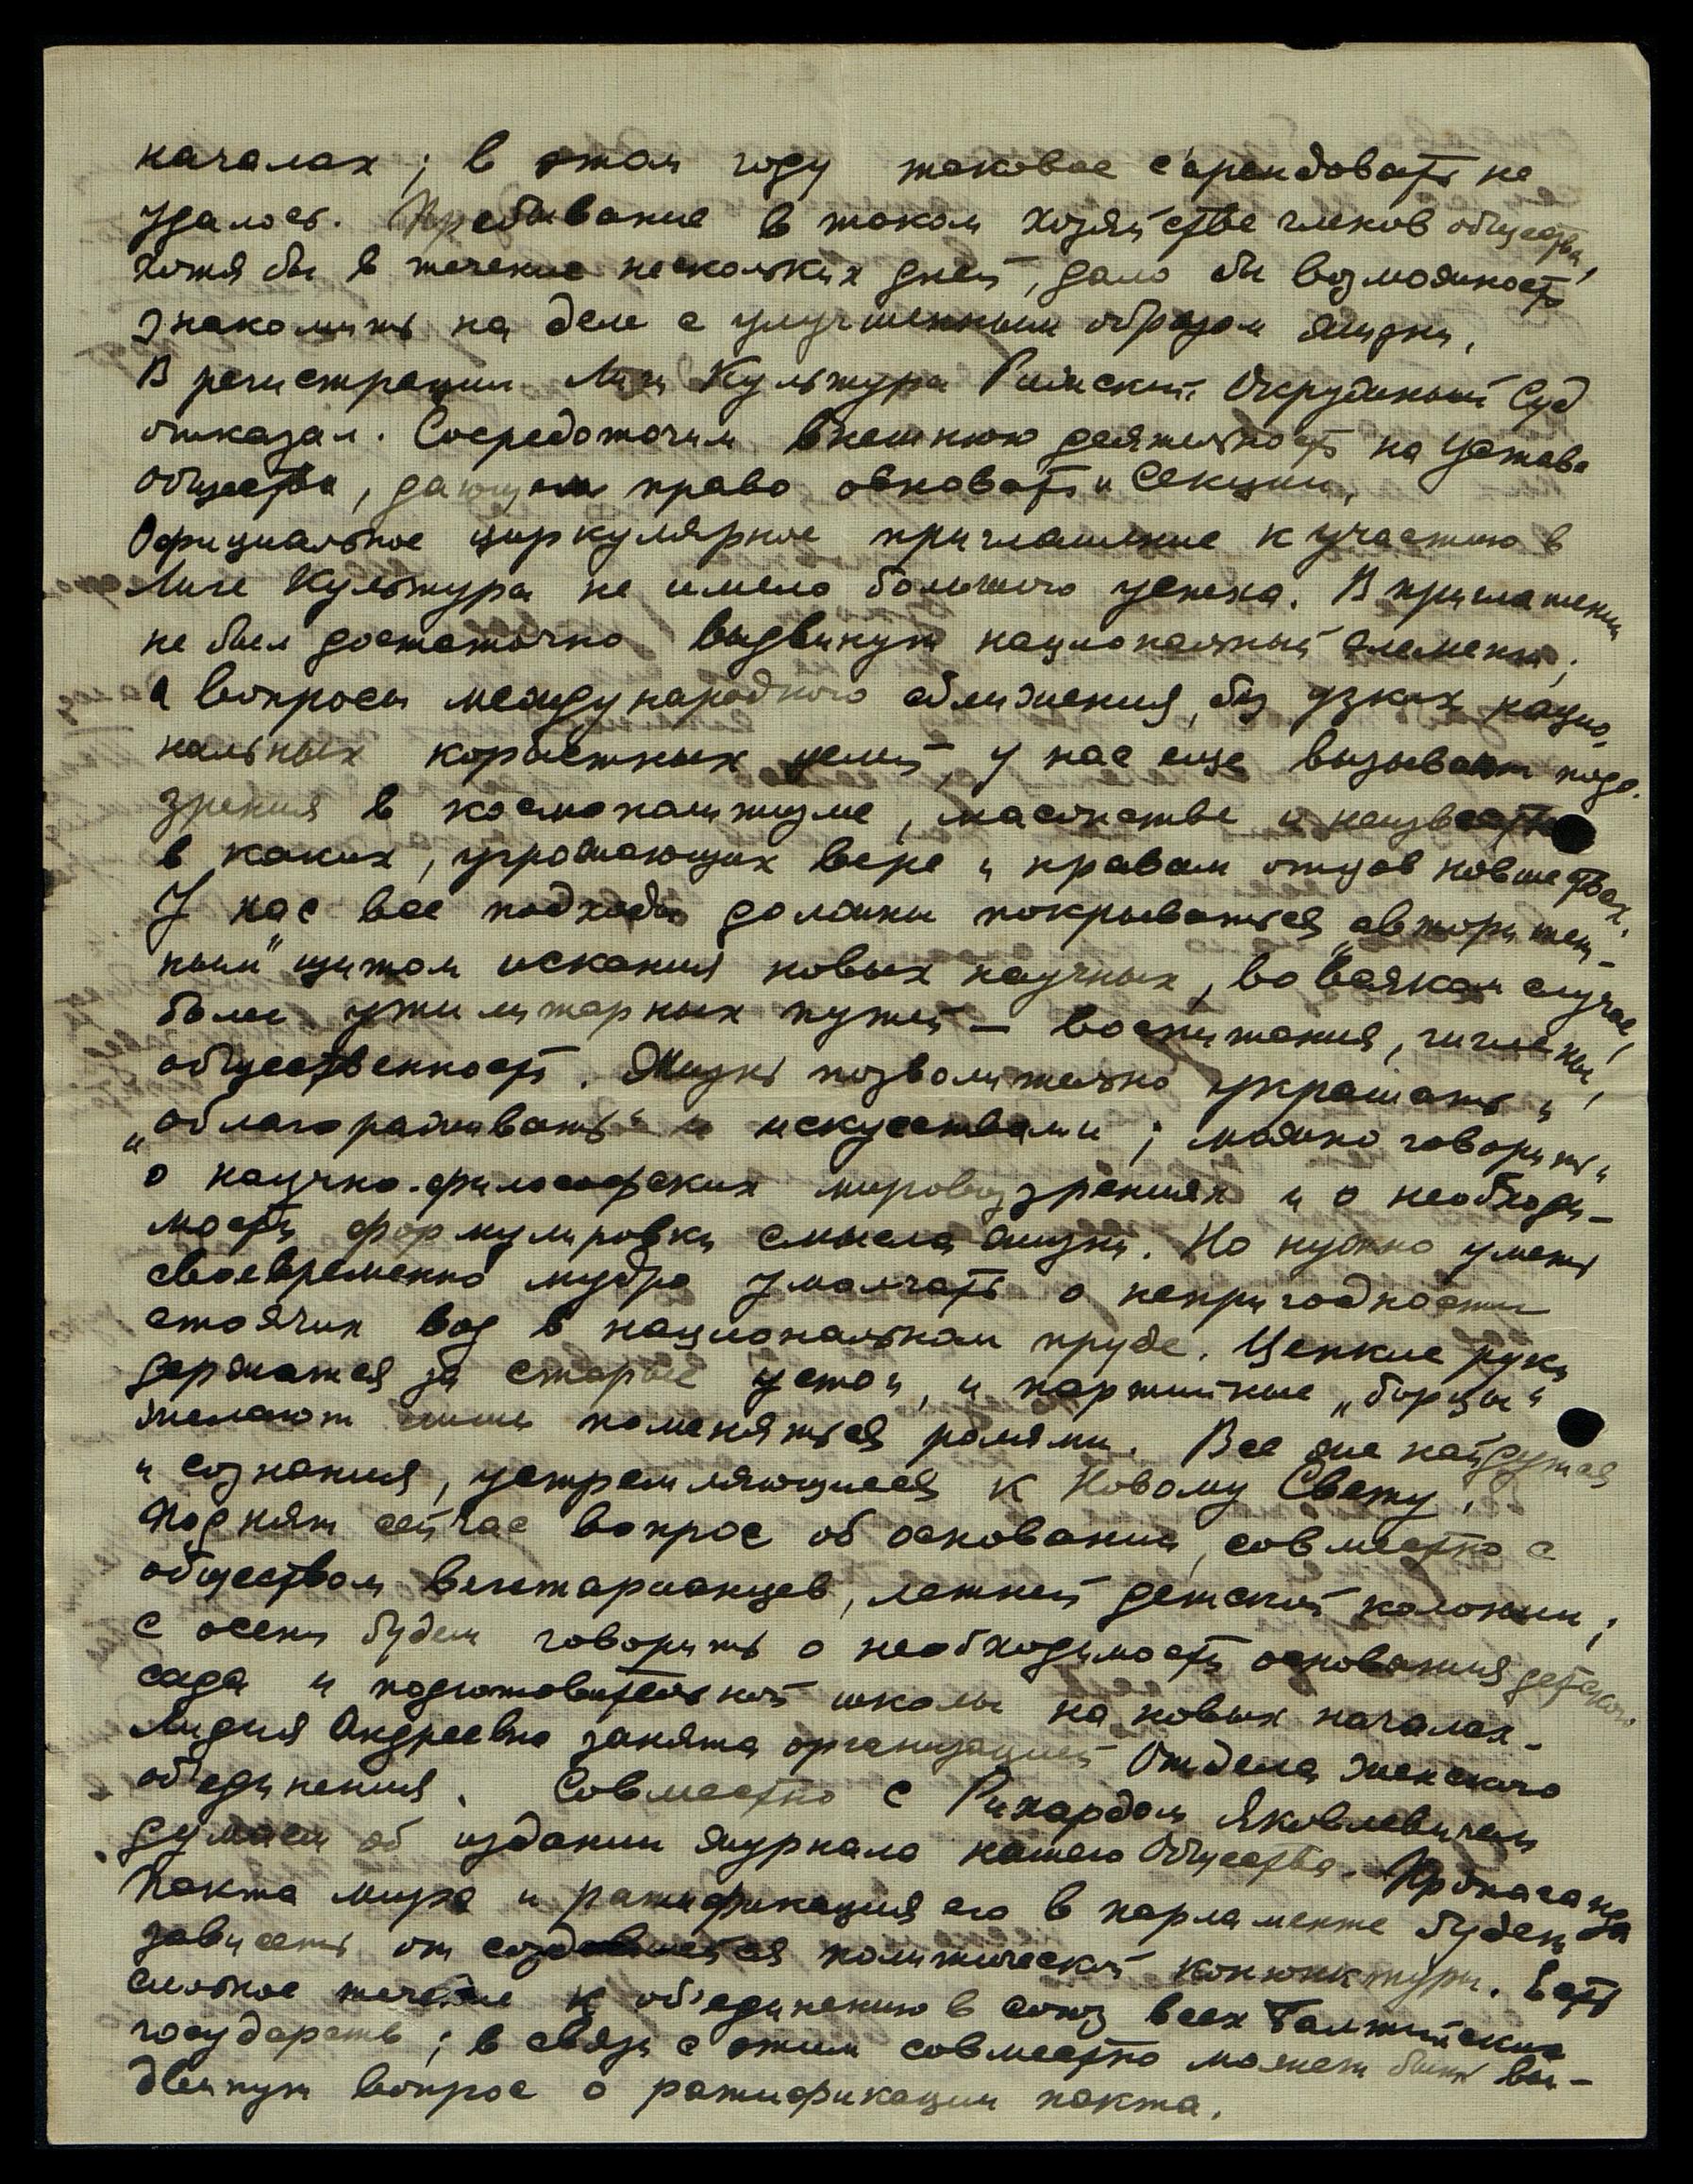 началах; в этом году таковое с'арендовать не
удалось. Пребывание в таком хозяйстве членов общества,
хотя бы в течение нескольких дней, дало бы возможность
знакомить на деле с улучшенным образом жизни.
В регистрации Лиги Культуры Рижский Окружный Суд
отказал. Сосредоточим внешнюю деятельность на Уставе
общества, дающем право основать и Секции.
Официальное циркулярное приглашение к участию в
Лиге Культуры не имело большого успеха. В приглашении
не был достаточно выдвинут национальный элемент;
а вопросы международного сближения, без узких нацио-
нальных корыстных целей, у нас еще вызывают подо-
зрения в космополитизме, масонстве и неизвестно
в каких, угрожающих вере и нравам отцов новшествах.
У нас все подходы должны покрываться „авторитет-
ным" щитом искания новых научных, во всяком случае,
более утилитарных путей — воспитания, гигиены,
общественность. Жизнь позволительно украшать и
„облагораживать" и искусствами; можно говорить и
о научно-философских мировоззрениях и о необходи-
мости формулировки смысла жизни. Но нужно уметь
своевременно мудро умолчать о непригодности
стоячих вод в национальном пруде. Цепкие руки
держатся за старые устои, и партийные „борцы"
желают лишь поменяться ролями. Все же найдутся
и сознания, устремляющиеся к Новому Свету.
Поднят сейчас вопрос об основании, совместно с
обществом вегетарианцев, летней детской колонии;
с осени будем говорить о необходимости основания детского
сада и подготовительной школы на новых началах.
Лидия Андреевна занята организацией Отдела женского
об'единения. Совместно с Рихардом Яковлевичем
думаем об издании журнала нашего Общества. Пропаганда
Пакта мира и ратификация его в парламенте будет
зависеть от политической конюнктуры. Есть
сильное течение к об'единению в союз всех Балтийских
государств; в связи с этим совместно может быть выд-
винут вопрос о ратификации пакта.